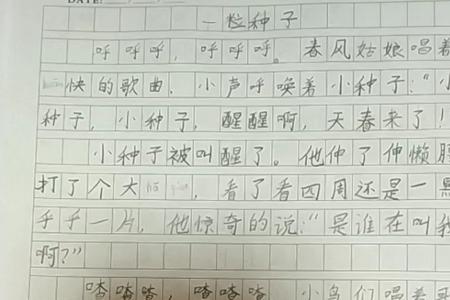 DATE:
一粒种子
呼呼呼，呼呼呼。春风姑娘唱着
快的歌曲，小声呼唤着小种子：“小
种子，小种子，醒醒啊，天春来了！
小种子被叫醒了。他伸了伸懒腰
打了个大，看了看四周还是一黑
乎乎一片，他惊奇的说：“是谁在叫我
啊？”
喳喳喳，喳喳喳，小鸟们唱着